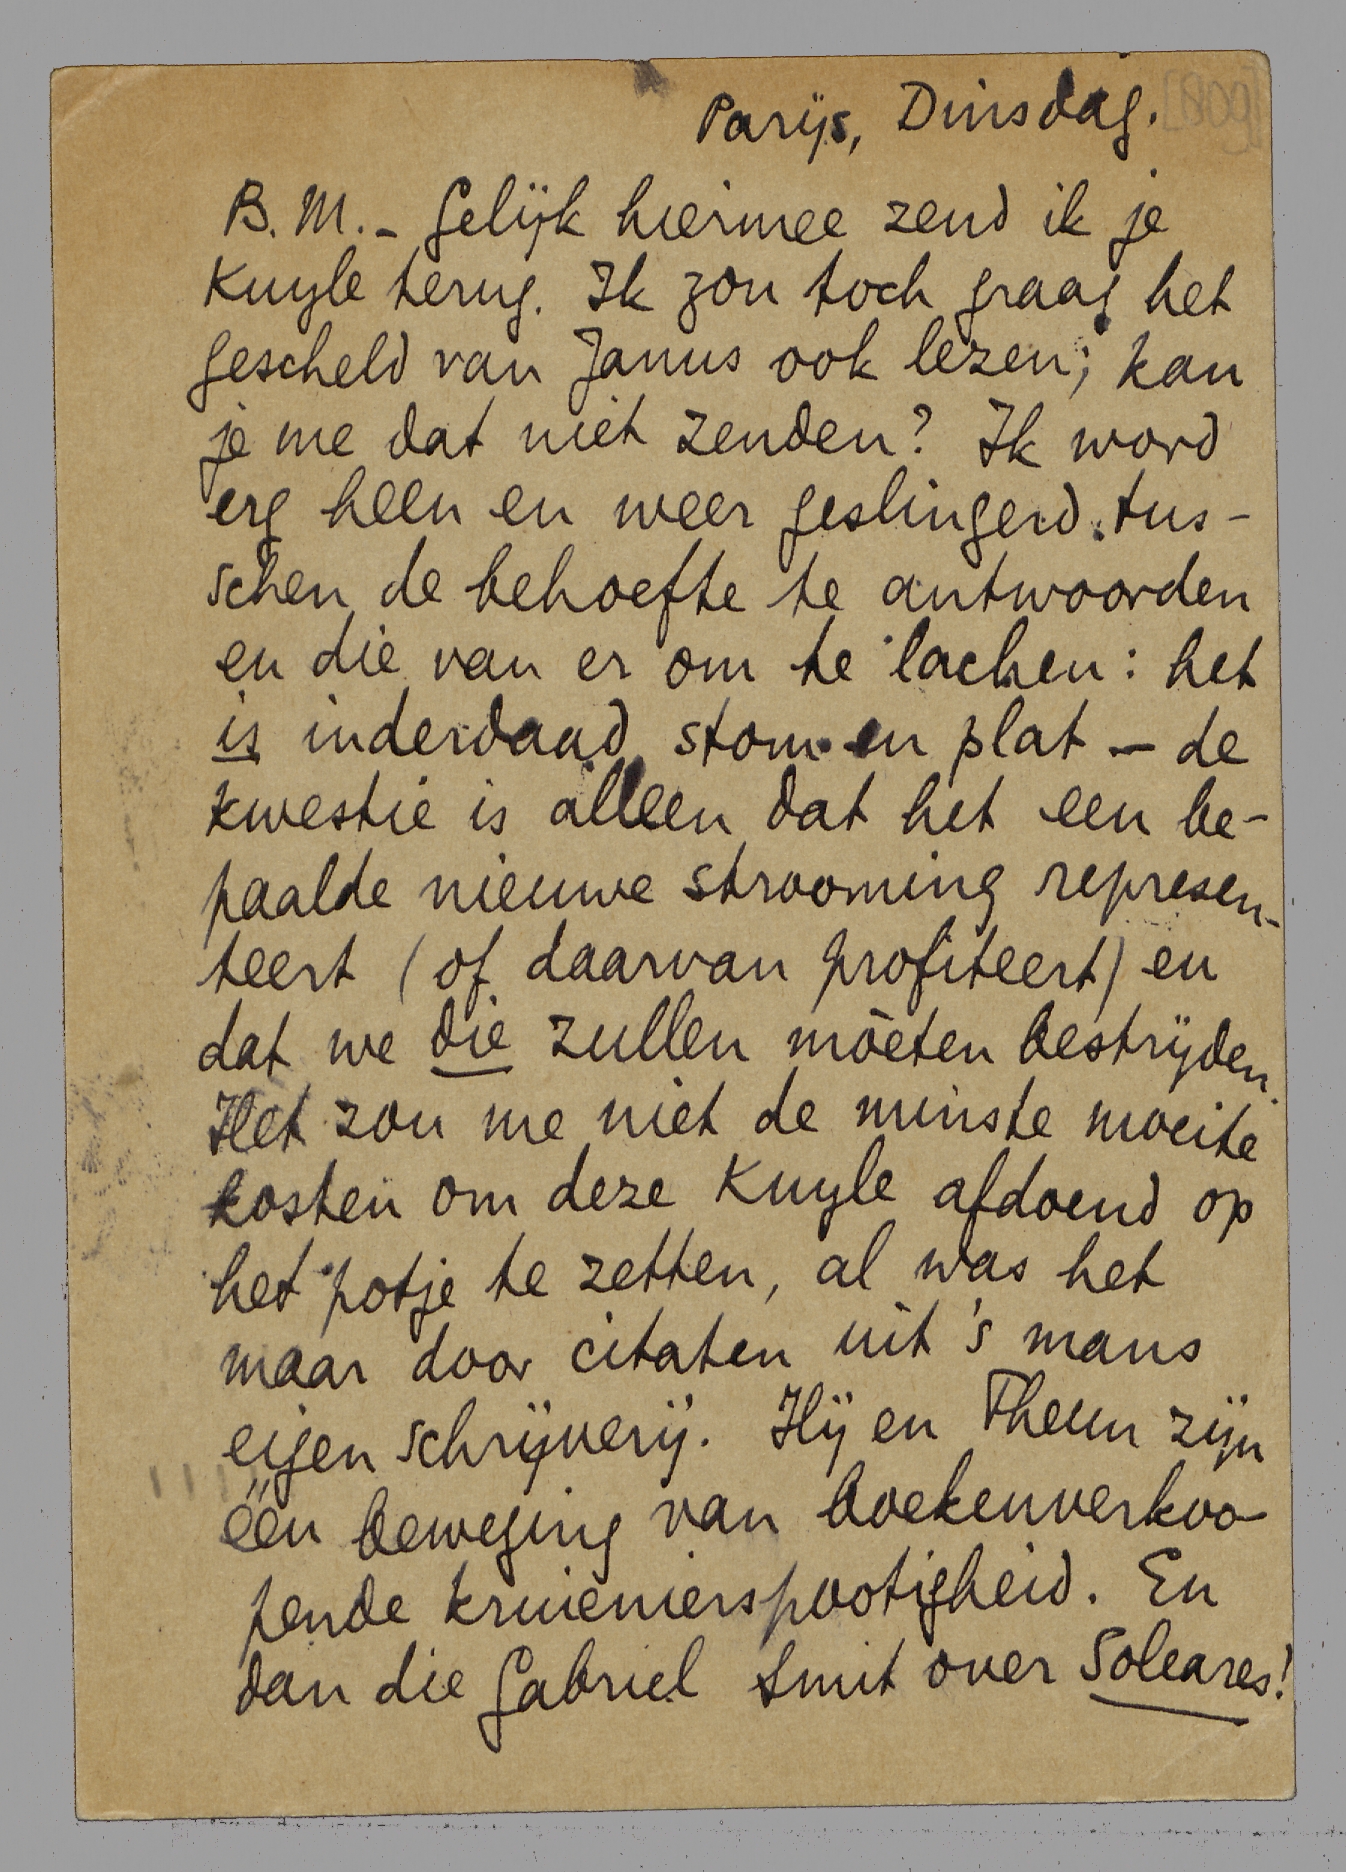 Parijs, Dinsdag.
B.M. – Gelijk hiermee zend ik je
Kuyle terug. Ik zou toch graag het
gescheld van Janus ook lezen; kan
je me dat niet zenden? Ik word
erg heen en weer geslingerd tus-
schen de behoefte te antwoorden
en die van er om te lachen: het
is inderdaad stom en plat – de
kwestie is alleen dat het een be-
paalde nieuwe strooming represen-
teert (of daarvan profiteert) en
dat we die zullen mòeten bestrijden.
Het zou me niet de minste moeite
kosten om deze Kuyle afdoend op
het potje te zetten, al was het
maar door citaten uit 's mans
eigen schrijverij. Hij en Theun zijn
één beweging van boekenverkoo-
pende kruienierspootigheid. En
dan die Gabriel Smit over Soleares!